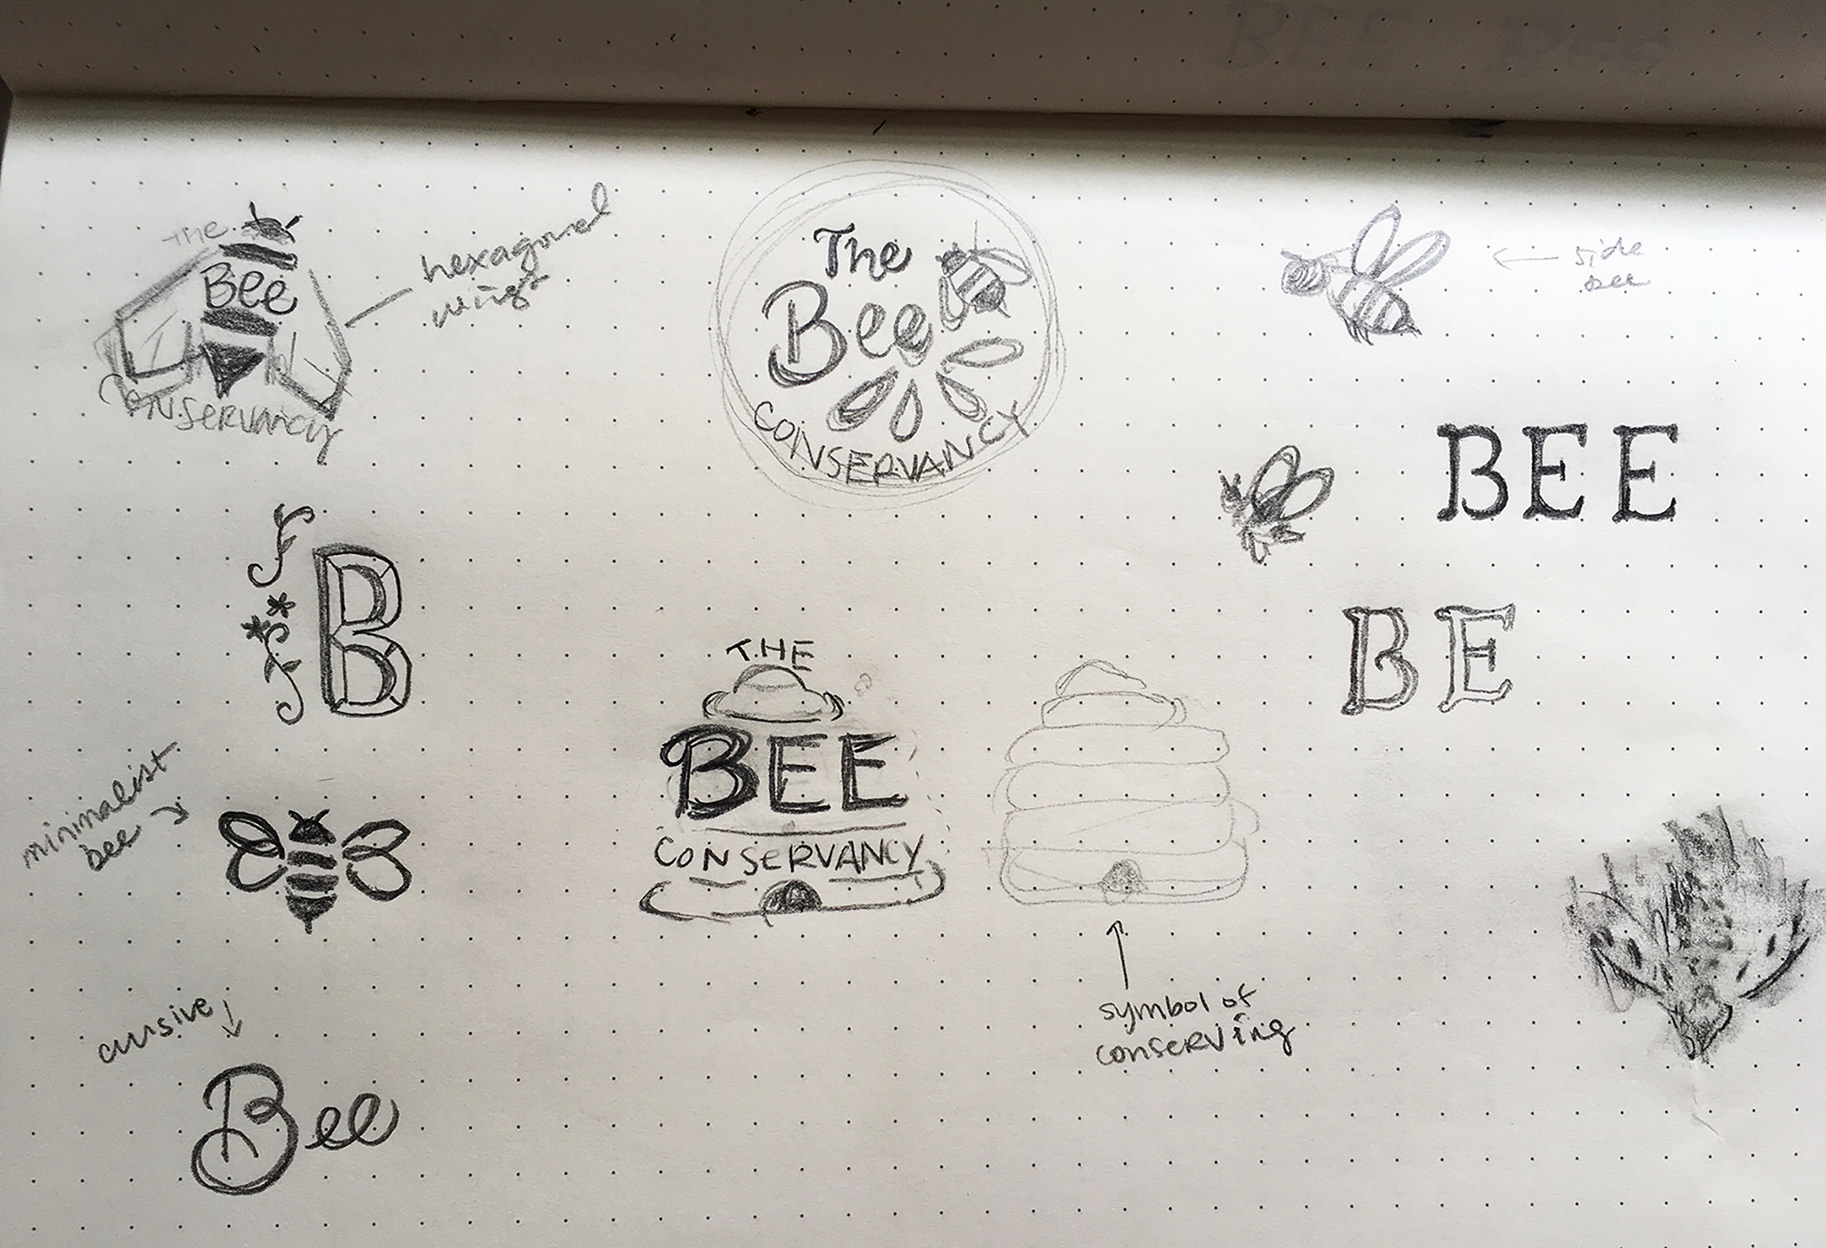 The
Bee
CONSERVANCY
hexagonal
wings
The
Bee
CONSERVANCY
side
bee
BEE
BE
B
THE
BEE
CONSERVANCY
minimalist
bee
symbol of
conserving
cursive
Bee